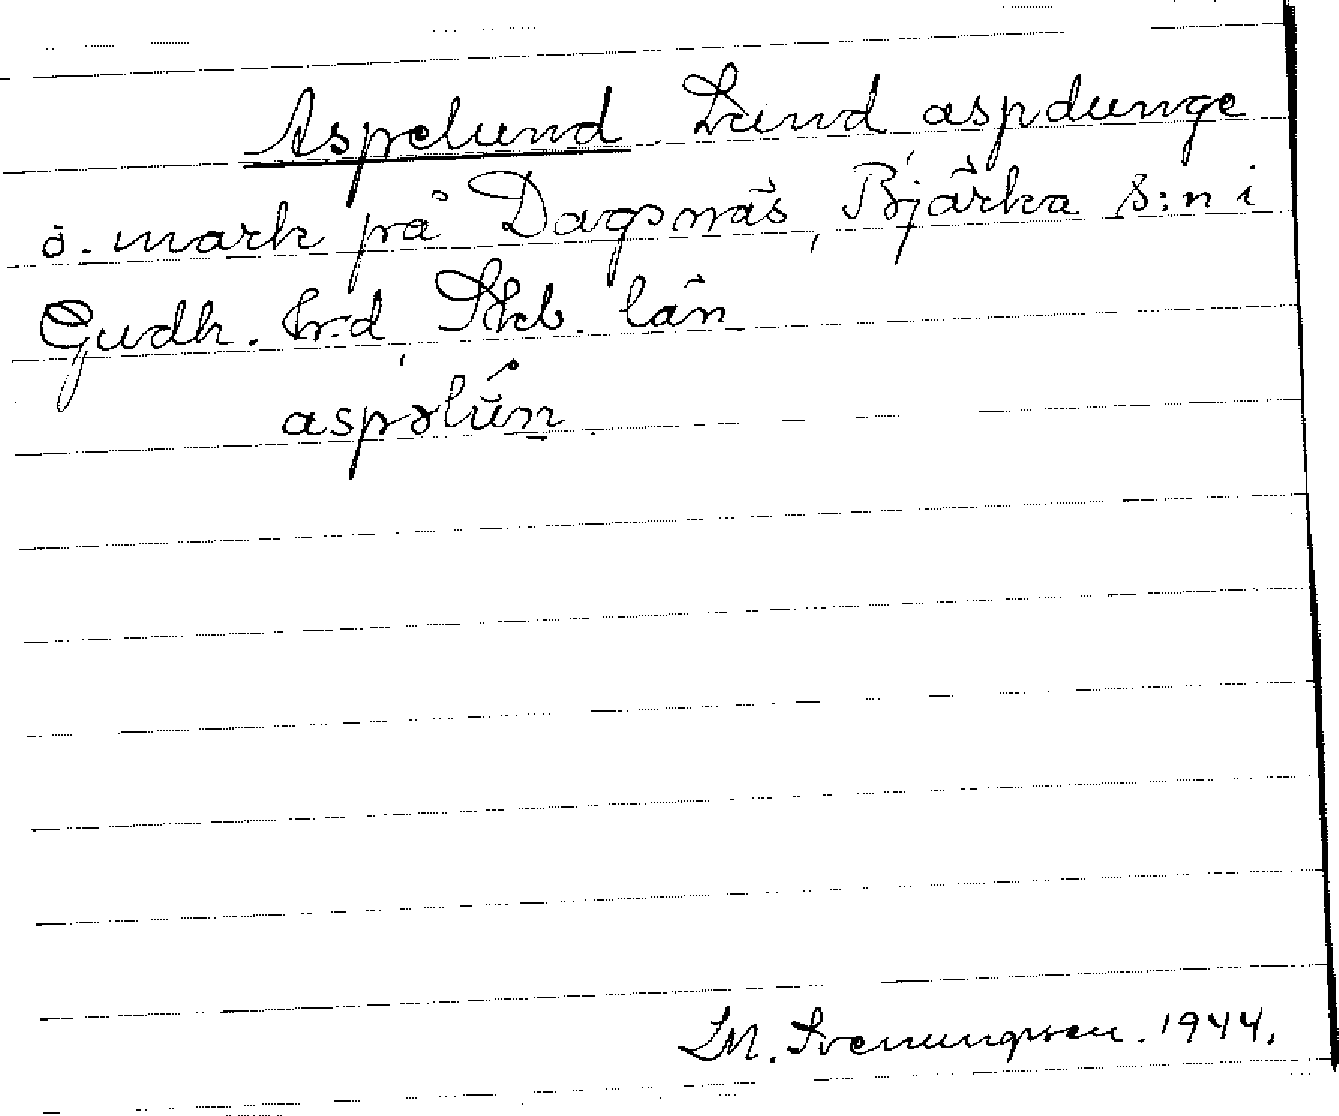 Aspelund Lund aspdunge
ö. mark på Dagsnäs, Bjärka s:n i
Gudh. hd, Skb. län
aspəlún
LM. Svenungsson. 1944.